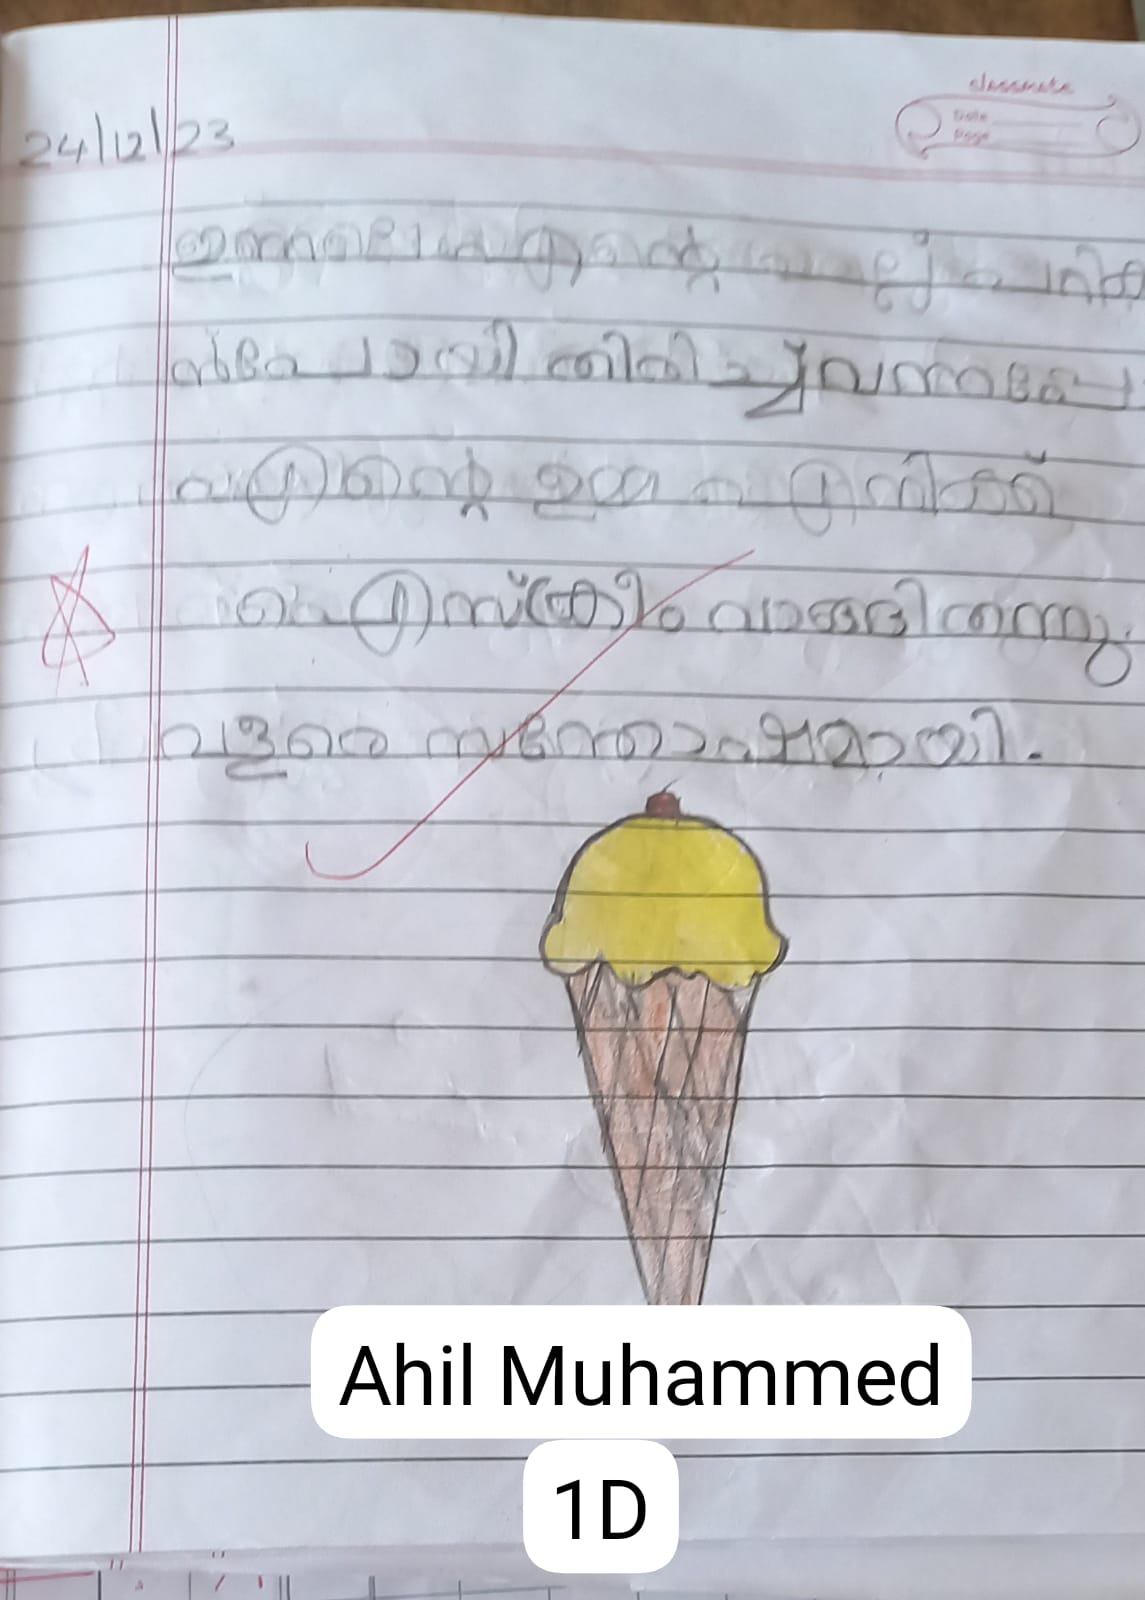 24/12/23
classmate
Date
Page
ഇന്നലെ എന്റെ
തിരിച്ചുവന്നപ്പോ
എന്റെ ഉമ്മ എനിക്ക്
ഐസ്ക്രീം വാങ്ങി തന്നു.
വളരെ സന്തോഷമായി.
Ahil Muhammed
1D